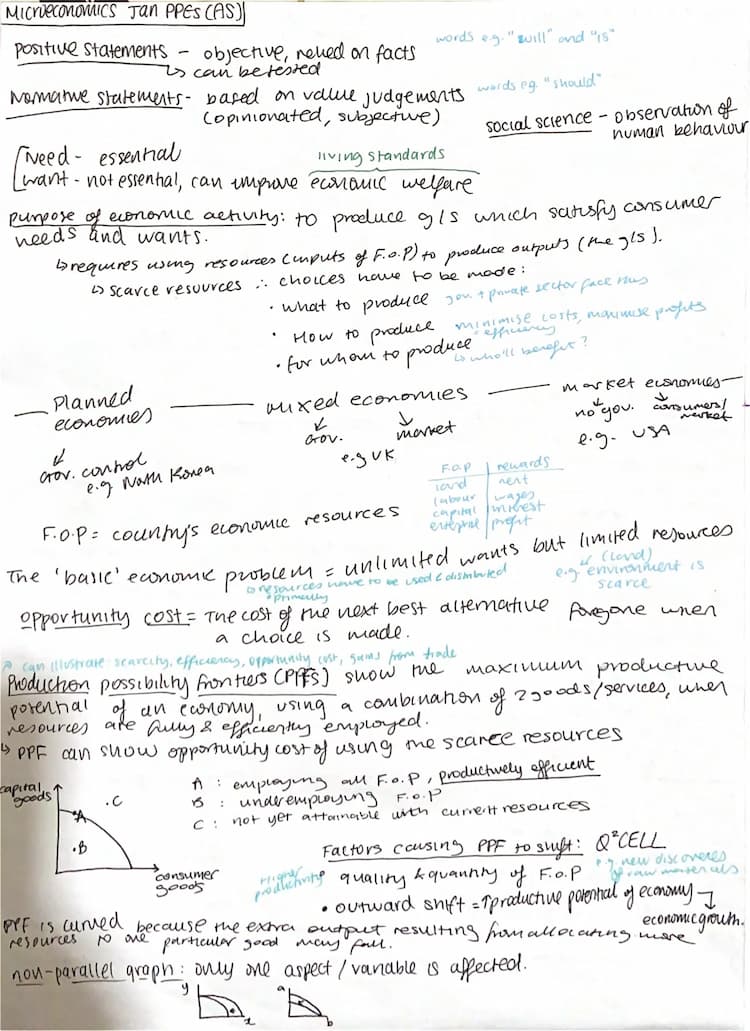 MICROECONOMICS JAN PPEs (AS)
words e.g. "will" and "is"
Positive statements - objective, relied on facts
↳ can be tested
words eg. "should"
Normative statements - based on value judgements
(opinionated, subjective)
social science - observation of
human behaviour
Need - essential
living standards
want - not essential, can improve economic welfare
purpose of economic activity: to produce g/s which satisfy consumer
needs and wants.
↳ requires using resources (inputs of F.o.P) to produce outputs (the g/s).
↳ scarce resources ∴ choices have to be made:
· what to produce gov. + private sector face this
· How to produce minimise costs, maximise profits
efficiency
· for whom to produce
↳ who'll benefit?
Planned
economies
Mixed economies
market economies
Gov.
market
no gov.
consumers/
market
e.g. USA
e.g UK
Gov. control
e.g North Korea
F.O.P | rewards
land | rent
labour | wages
capital | interest
enterprise | profit
F.O.P = country's economic resources
The 'basic' economic problem = unlimited wants but limited resources
↳ resources have to be used & distributed
(land)
e.g. environment is
scarce
opportunity cost = The cost of the next best alternative foregone when
a choice is made.
can illustrate scarcity, efficiency, opportunity cost, gains from trade
Production possibility frontiers (PPFs) show the maximum productive
potential of an economy, using a combination of 2 goods/services, when
resources are fully & efficiently employed.
↳ PPF can show opportunity cost of using the scarce resources
capital
goods
A
·B
·C
consumer
goods
A : employing all F.o.P, productively efficient
B : underemploying F.o.P
C : not yet attainable with current resources
Factors causing PPF to shift: Q²CELL
Higher
productivity
quality & quantity of F.o.P
e.g. new discoveries
of raw materials
• outward shift = ↑ productive potential of economy
economic growth.
PPF is curved because the extra output resulting from allocating more
resources to one particular good may fall.
non-parallel graph: only one aspect / variable is affected.
y
x
a
b